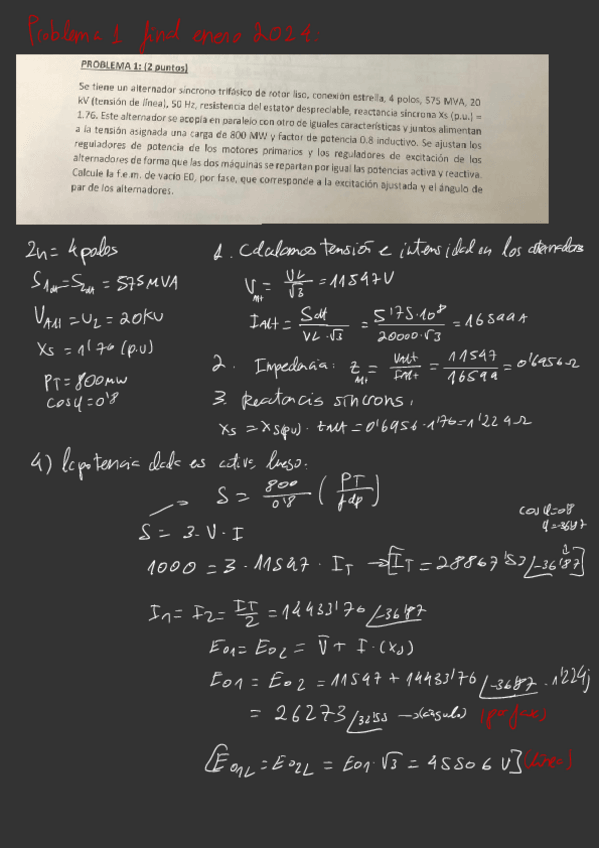 Problema 1 final enero 2024:
PROBLEMA 1: (2 puntos)
Se tiene un alternador síncrono trifásico de rotor liso, conexión estrella, 4 polos, 575 MVA, 20
kV (tensión de línea), 50 Hz, resistencia del estator despreciable, reactancia síncrona Xs (p.u.) =
1.76. Este alternador se acopla en paralelo con otro de iguales características y juntos alimentan
a la tensión asignada una carga de 800 MW y factor de potencia 0.8 inductivo. Se ajustan los
reguladores de potencia de los motores primarios y los reguladores de excitación de los
alternadores de forma que las dos máquinas se repartan por igual las potencias activa y reactiva.
Calcule la f.e.m. de vacío E0, por fase, que corresponde a la excitación ajustada y el ángulo de
par de los alternadores.
2n = 4 polos
S1alt = S2alt = 575 MVA
VAlt = UL = 20KV
Xs = 1'76 (p.u)
PT = 800MW
cosφ = 0'8
1. Calculamos tensión e intensidad en los alternadores
VAlt = VL/√3 = 11547V
IAlt = Salt/VL·√3 = 5'75·10⁸/20000·√3 = 16599A
2. Impedancia: ZAlt = VAlt/IAlt = 11547/16599 = 0'6956Ω
3. Reactancia síncrona:
Xs = Xs(pu) · ZAlt = 0'6956·1'76 = 1'224Ω
4) la potencia dada es activa luego:
S = 800/0'8 (PT/fdp)
S = 3·V·I
cosφ=0'8
φ=-36'87
1000 = 3·11547·IT → [IT = 28867'53 /-36'87]
I1 = I2 = IT/2 = 14433'76 /-36'87
E01 = E02 = V + I·(Xs)
E01 = E02 = 11547 + 14433'76 /-36'87 · 1'224j
= 26273 /32'53 → (ángulo) (por fase)
[E01L = E02L = E01·√3 = 45506 V] (línea)